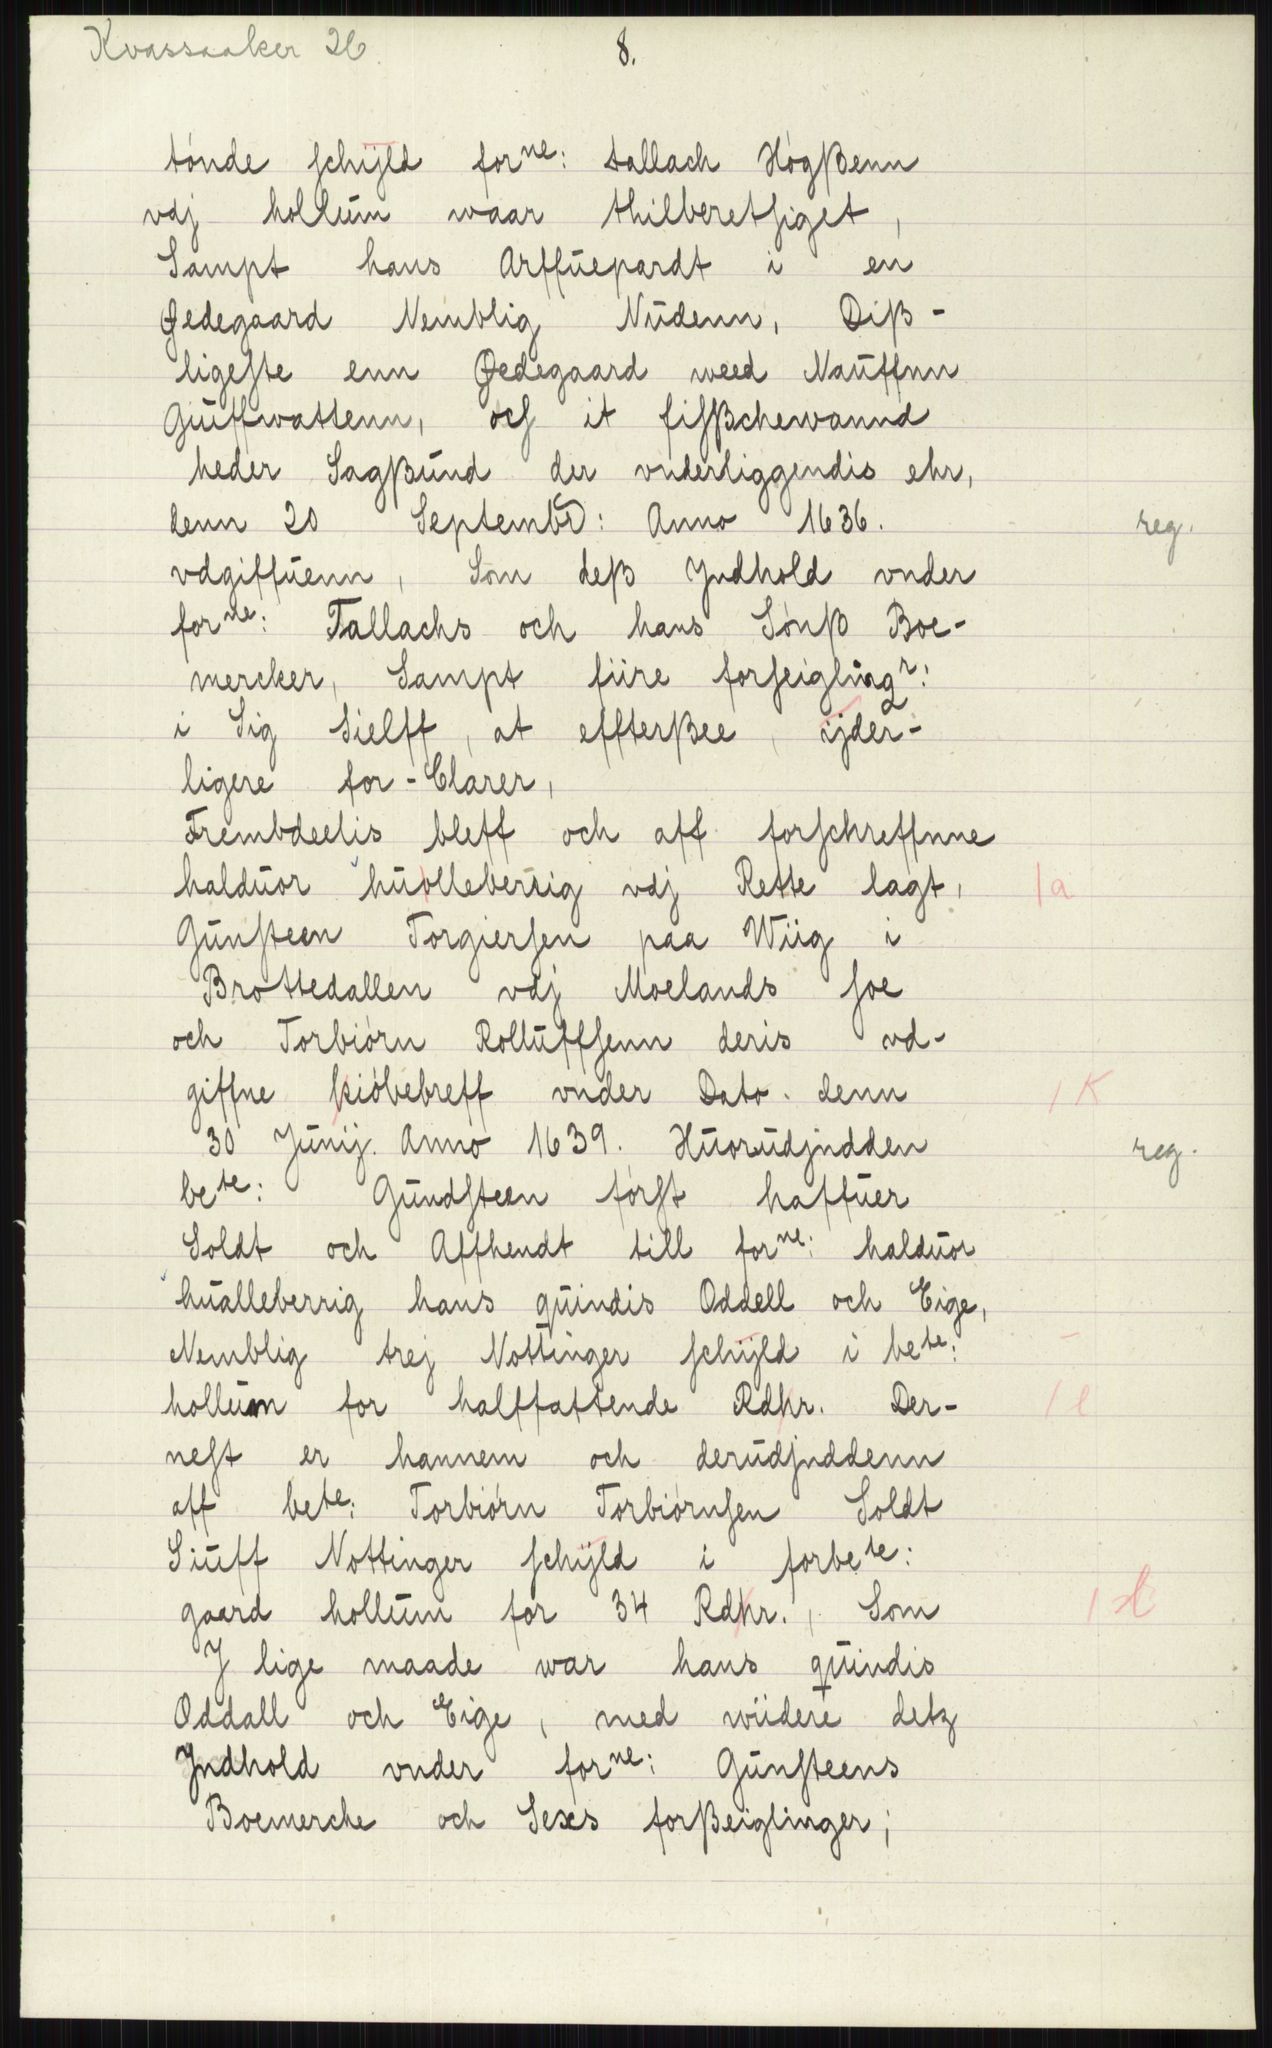 Kvassaaker 26.
8.
tónde schÿld forne: tallach Hógßenn
vdj hollum waar thilberetsiget,
Sampt hans Arffuepardt i en
Øedegaard Nemblig Nudenn, Diß-
ligeste enn Øedegaard weed Nauffnn
Guffwattenn, och it fisßchewannd
heder Sagßund der vnderliggendis ehr,
denn 20 Septembr: Anno 1636. reg.
vdgiffuenn, Som deß Jndhold vnder
forne: Tallachs och hans Sónß Boe-
mercker, Sampt fiire forseiglingr:
i Sig Sielff, at effterßee, ÿder-
ligere for-Clarer,
Frembdeelis bleff och aff forschreffnne
halduor huollebersig vdj Rette lagt, | a
Gunsteen Torgiersen paa Wiig i
Brottedallen vdj Moelands soe
och Torbiórn Rolluffsenn deris vd-
giffne kióbebreff vnder Dato. denn | K
30 Junij. Anno 1639. Huorudjndden reg.
bete: Gundsteen fórst haffuer
Soldt och Affhendt till forne: halduor
hualleberrig hans quindis Oddell och Eige,
Nemblig trej Nottinger schÿld i bete:
hollum for halffattende Rdhr. Der- | l
nest er hannem och derudjnddenn
aff bete: Torbiórn Torbiórnsen Soldt
Siuff Nottinger schÿld i forbete:
gaard hollum for 34 Rdhr., Som | l
J lige maade war hans quindis
Oddall och Eige, med wiidere detz
Jndhold vnder forne: Gunsteens
Boemerche och Sexs forßeiglinger;